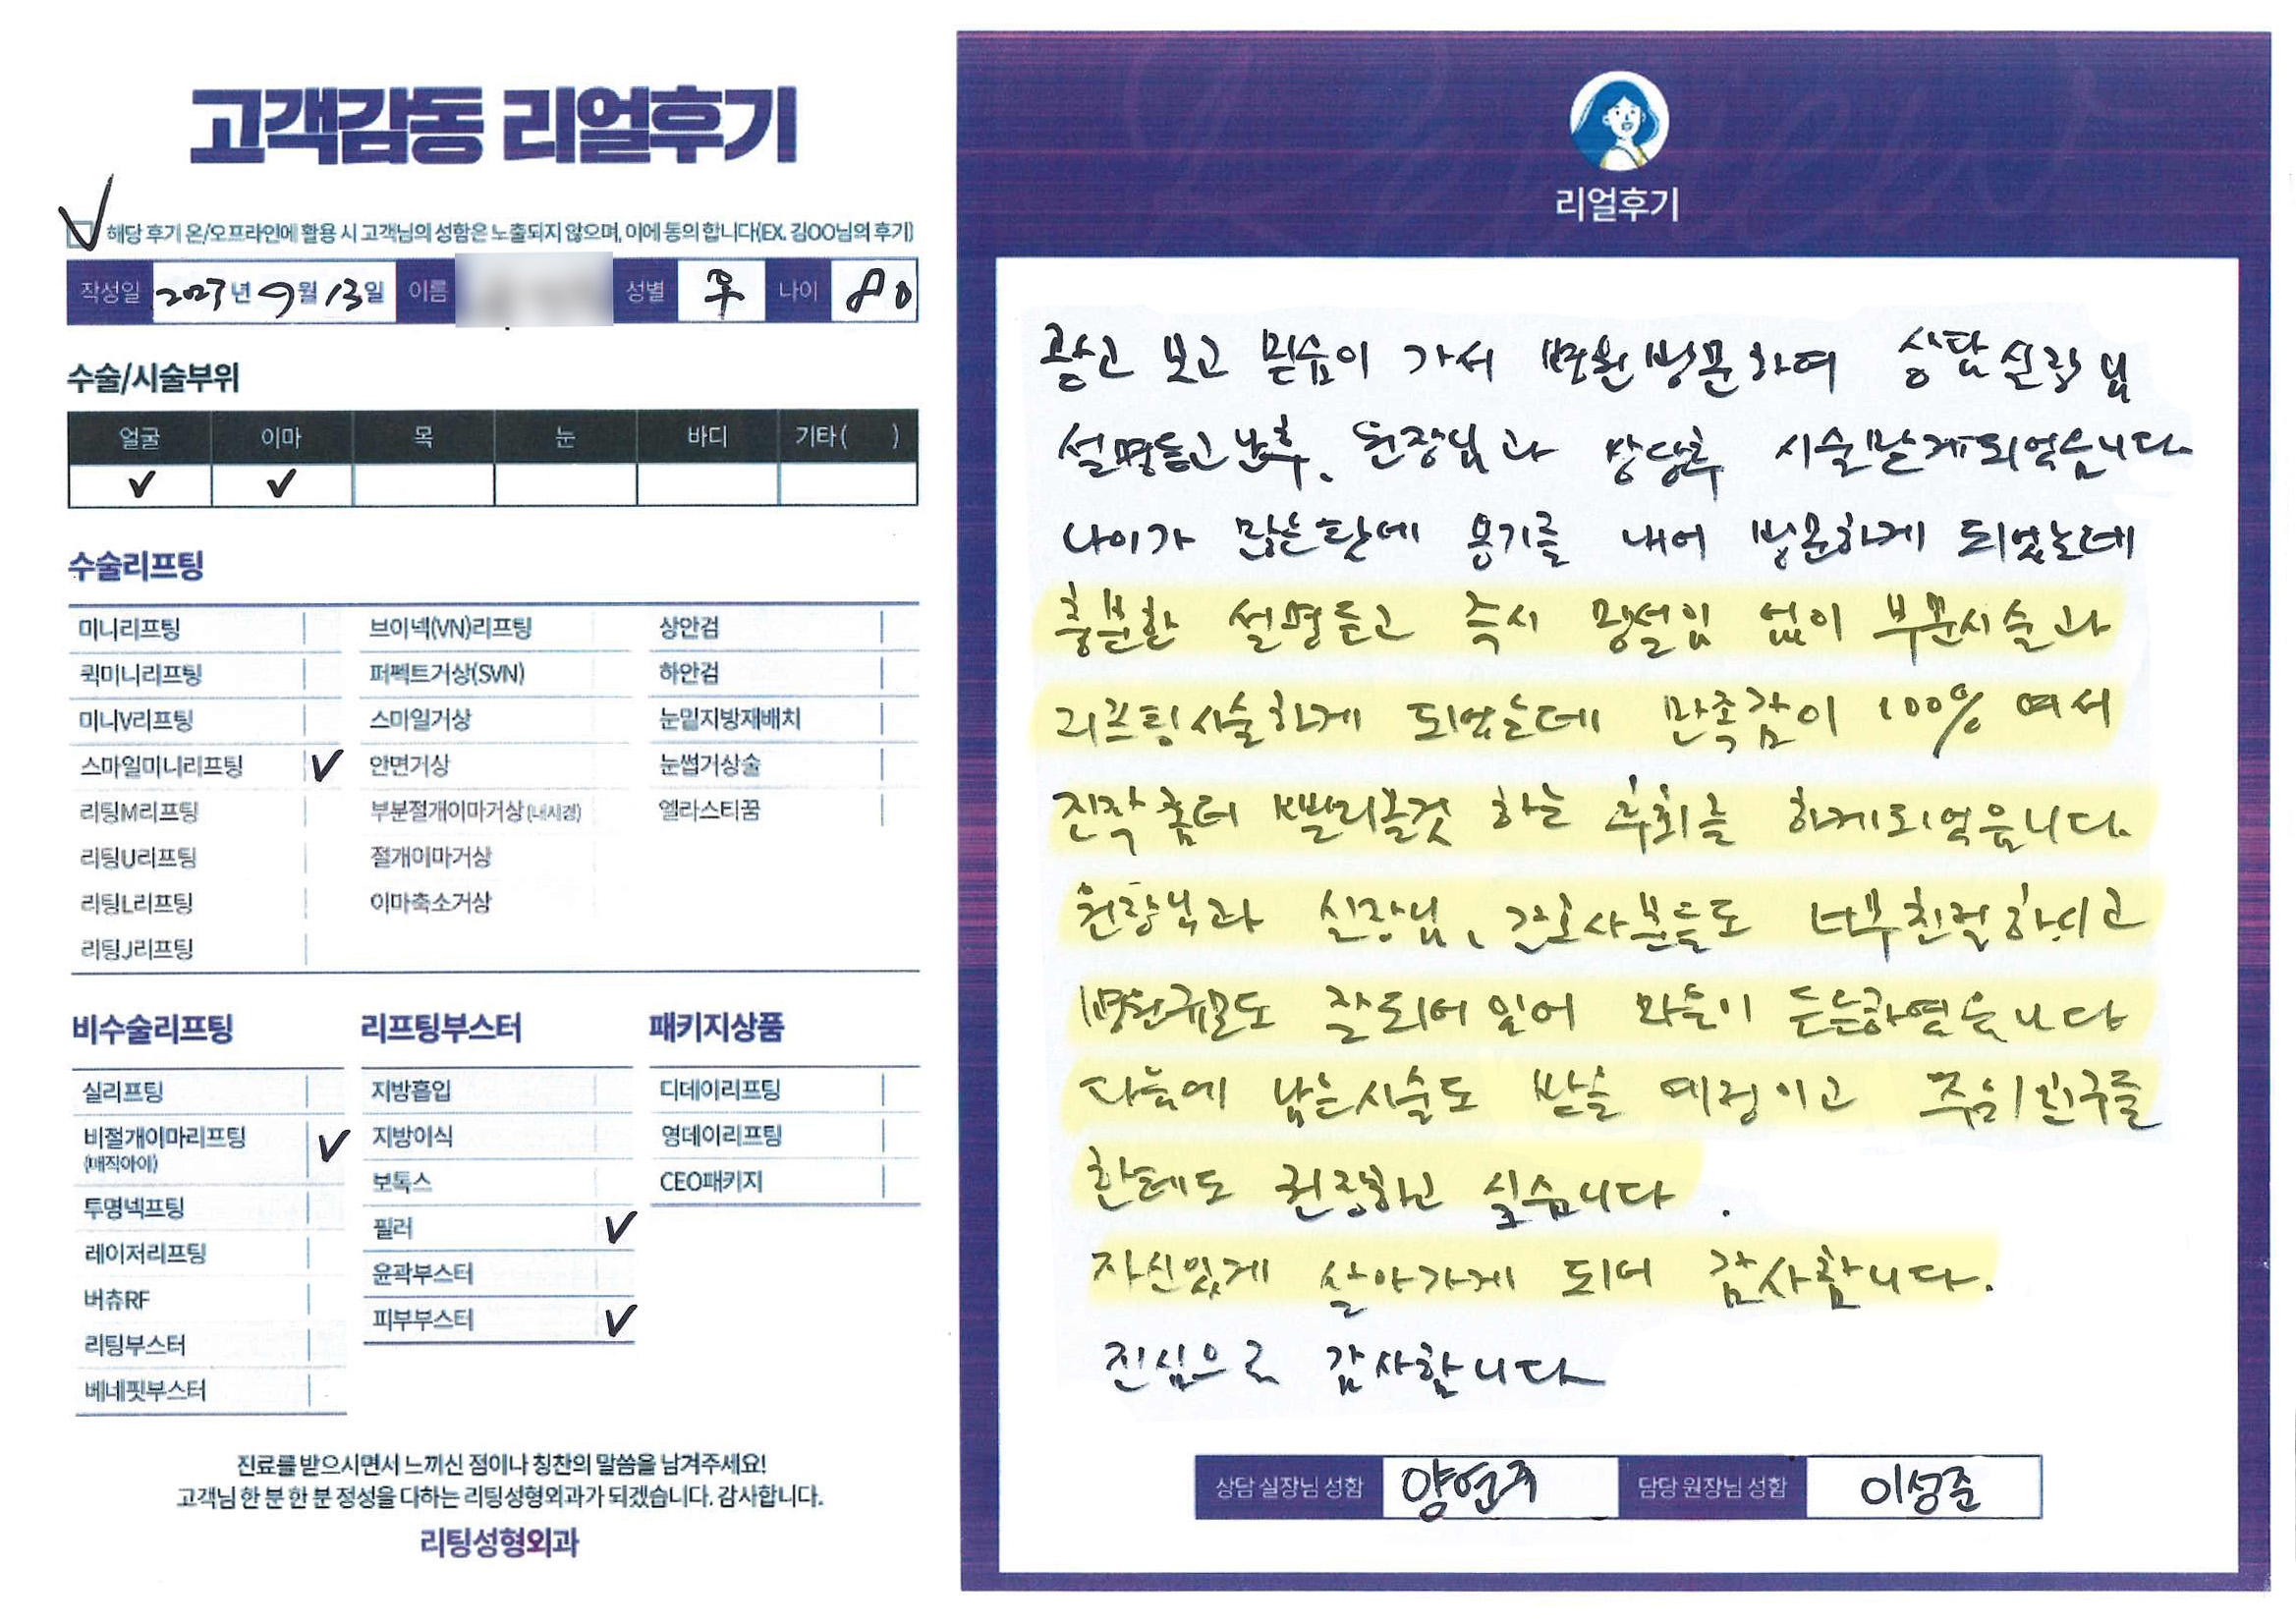 고객감동 리얼후기
해당 후기 온/오프라인에 활용 시 고객님의 성함은 노출되지 않으며, 이에 동의 합니다(EX. 김OO님의 후기)
작성일 2023년 9월 13일 이름 성별 나이 80
수술/시술부위
얼굴 이마 목 눈 바디 기타( )
수술리프팅
미니리프팅 브이넥(VN)리프팅 상안검
퀵미니리프팅 퍼펙트거상(SVN) 하안검
미니V리프팅 스마일거상 눈밑지방재배치
스마일미니리프팅 안면거상 눈썹거상술
리팅M리프팅 부분절개이마거상(내시경) 엘라스티꿈
리팅U리프팅 절개이마거상
리팅L리프팅 이마축소거상
리팅J리프팅
비수술리프팅 리프팅부스터 패키지상품
실리프팅 지방흡입 디데이리프팅
비절개이마리프팅 지방이식 영데이리프팅
(매직아이) 보톡스 CEO패키지
투명넥프팅 필러
레이저리프팅 윤곽부스터
버츄RF 피부부스터
리팅부스터
베네핏부스터
진료를 받으시면서 느끼신 점이나 칭찬의 말씀을 남겨주세요!
고객님 한 분 한 분 정성을 다하는 리팅성형외과가 되겠습니다. 감사합니다.
리팅성형외과
리얼후기
광고 보고 믿음이 가서 병원방문하여 상담실장님
설명듣고난후, 원장님과 상담후 시술받게되었습니다.
나이가 많은탓에 용기를 내어 방문하게 되었는데
충분한 설명듣고 즉시 망설임 없이 부분시술과
리프팅시술하게 되었는데 만족감이 100% 여서
진작 좀더 빨리올것 하는 후회를 하게되었읍니다.
원장님과 실장님, 간호사분들도 너무친절하시고
병원규모도 잘되어있어 마음이 든든하였읍니다
다음에 남은시술도 받을 예정이고 주위친구들
한테도 권장하고 싶습니다.
자신있게 살아가게 되어 감사합니다.
진심으로 감사합니다
상담 실장님 성함 양연주 담당 원장님 성함 이성준